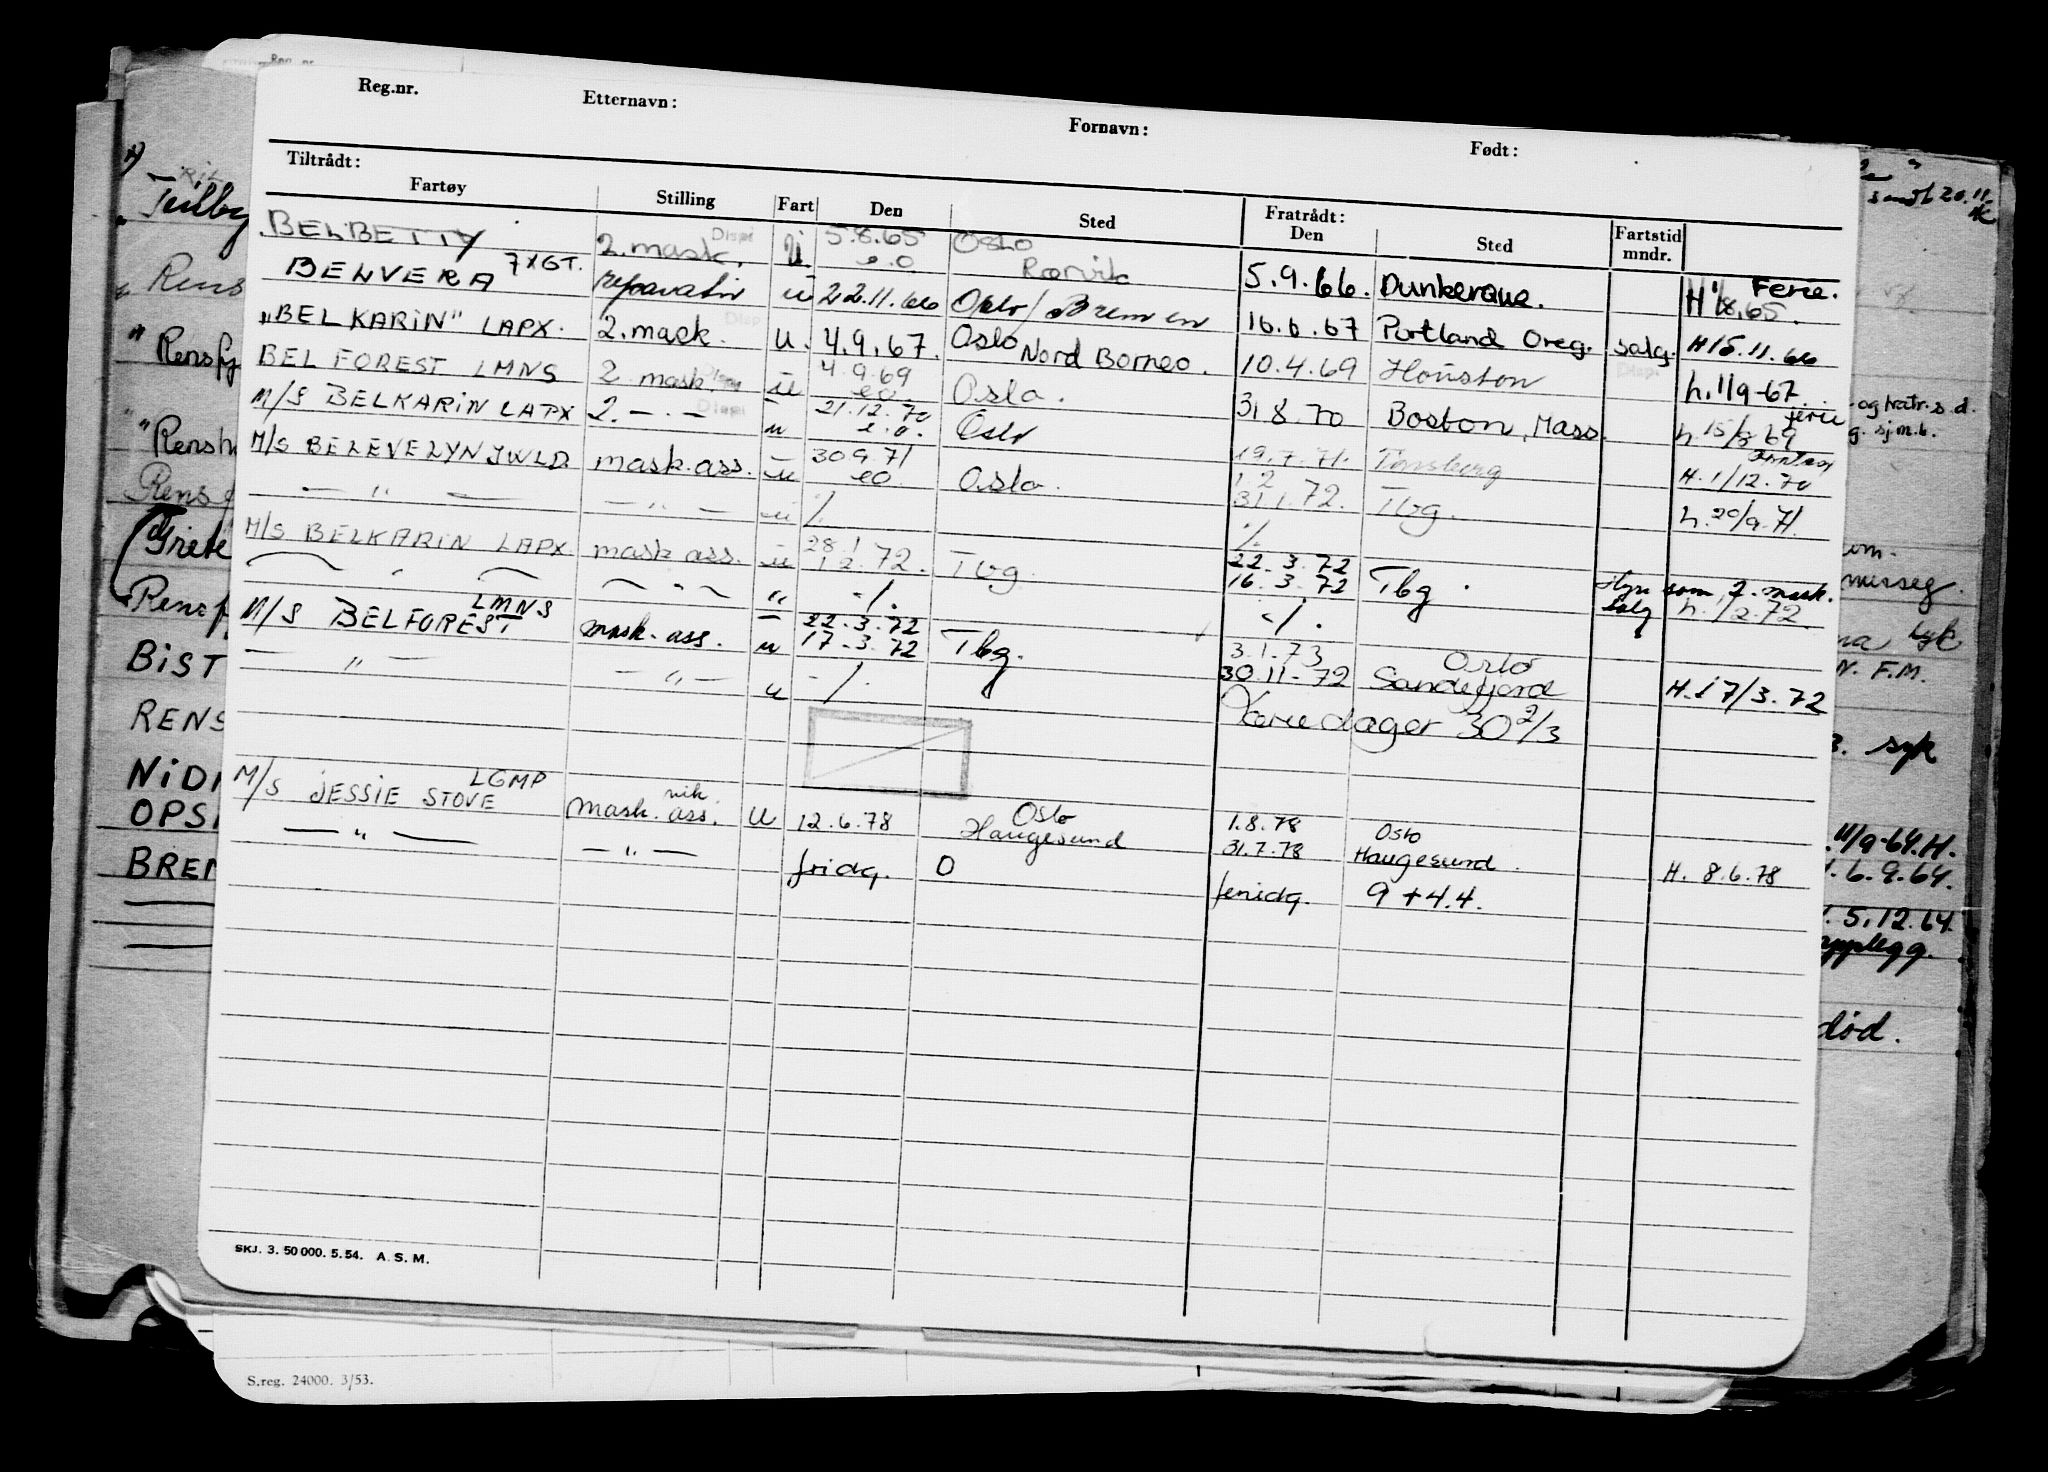 Reg.nr. Etternavn: Fornavn: Født:
Tiltrådt: Fratrådt:
Fartøy Stilling Fart Den Sted Den Sted Fartstid mndr.
BELBETTY 2. mask. Dispi u 5.8.65 e.o. OSLO Rørvik 5.9.66. Dunkerque. H 1/8.65. Ferie.
BELVERA 7XGT. reparatør u 22.11.66 Oslo/Bremen 16.6.67 Portland Oreg. salg. H 15.11.66
"BELKARIN" LAPX. 2. mask. Disp u. 4.9.67. Oslo Nord Borneo. 10.4.69 Houston Dispi h. 1/9-67.
BEL FOREST LMNS 2 mask. Disp u 4.9.69 eo. Oslo. 31.8.70 Boston, Mass. h. 15/8 69 ferie
M/S BELKARIN LAPX 2. — . — Dispi u 21.12.70 e.o. Oslo 19.7.71. Tønsberg H. 1/12.70
M/S BELEVELYN JWLD mask. ass. u 30 9 71 eo Oslo. 1 2 31.1.72. Tbg. h. 20/9-71.
— " — — " — u ./. ./.
M/S BELKARIN LAPX mask ass. u 28.1 1.2.72. Tbg 22.3.72 16.3.72 Tbg. Hyre som 2. mask. Salg h. 1/2.72.
— " — — " — " ./. ./.
M/S BELFOREST LMNS mask. ass. u 22.3.72 17.3.72 Tbg. 3.1.73 30.11.72 Oslo Sandefjord H. 17/3.72
— " — — " — u ./.
Feriedager 30 2/3
M/S JESSIE STOVE LGMP mask. vik. ass. U 12.6.78 Oslo Haugesund 1.8.78 31.7.78 Oslo Haugesund. H. 8.6.78
— " — — " — fridg. 0 feriedg. 9 + 4.4.
SKJ. 3. 50 000. 5.54. A. S. M.
S.reg. 24000. 3/53.
Rens
"
Rens
Grete
BIST
RENS
NID
OPS
BREN
sendt 20.11.
og fratr. s. d.
g. sj.m.b.
N. F.M.
syk
11/9-64. H.
6.9.64.
5.12.64.
opplegg.
død.